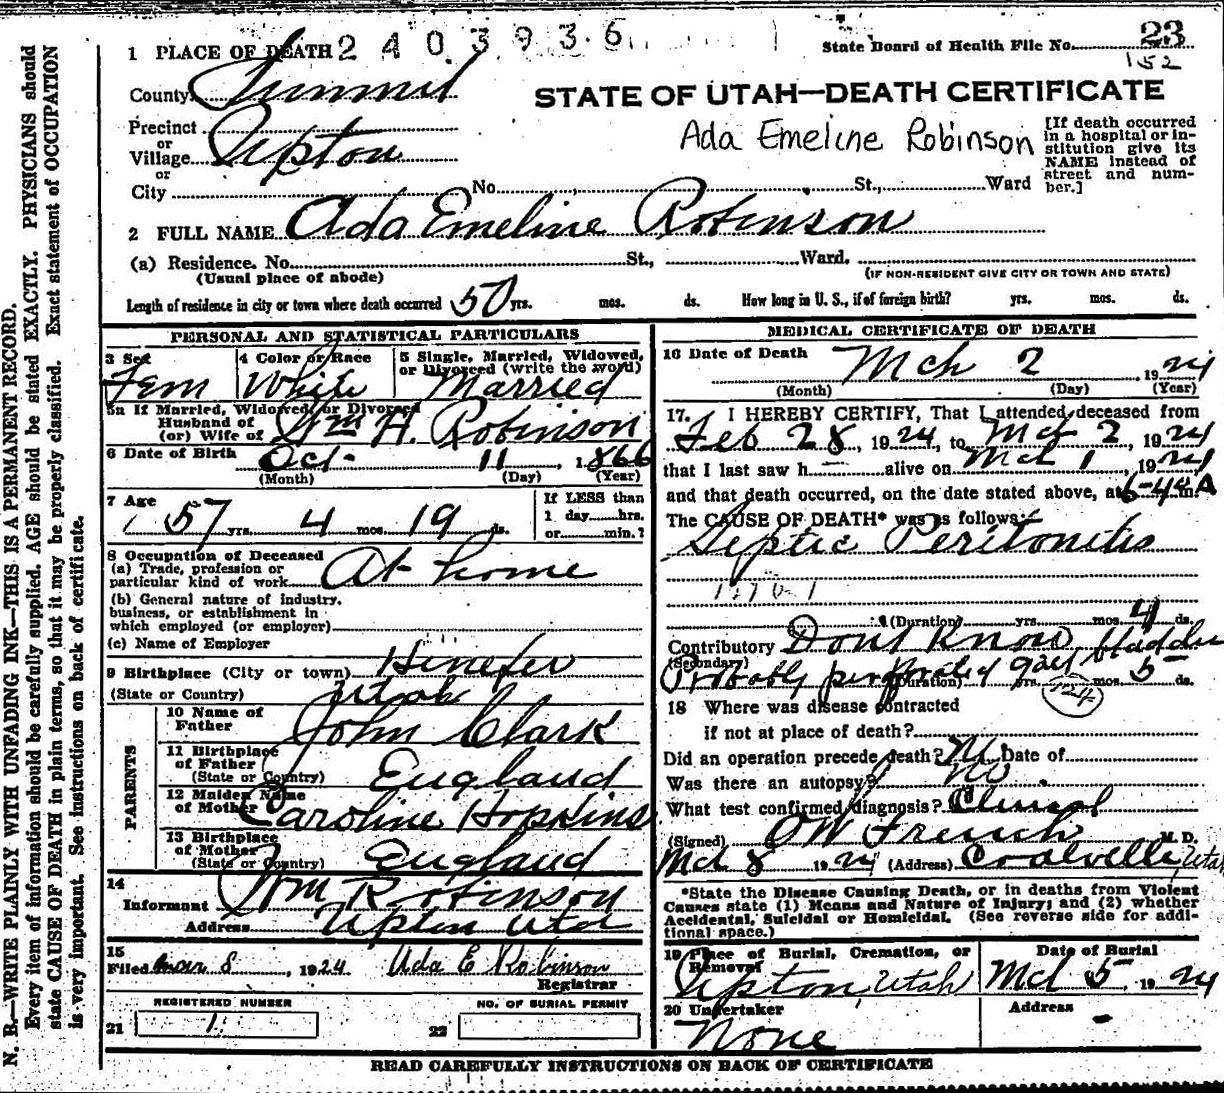 1 PLACE OF DEATH 2403936
State Board of Health File No. 23
152
County Summit
STATE OF UTAH—DEATH CERTIFICATE
Precinct
or
Village Upton
or
City No. St., Ward
Ada Emeline Robinson
[If death occurred
in a hospital or in-
stitution give its
NAME instead of
street and num-
ber.]
2 FULL NAME Ada Emeline Robinson
(a) Residence. No. St., Ward.
(Usual place of abode)
(IF NON-RESIDENT GIVE CITY OR TOWN AND STATE)
Length of residence in city or town where death occurred 50 yrs. mos. ds. How long in U. S., if of foreign birth? yrs. mos. ds.
PERSONAL AND STATISTICAL PARTICULARS
3 Sex
Fem
4 Color or Race
White
5 Single, Married, Widowed,
or Divorced (write the word)
Married
5a If Married, Widowed, or Divorced
Husband of
(or) Wife of Wm H. Robinson
6 Date of Birth Oct. 11, 1866
(Month) (Day) (Year)
7 Age
57 yrs. 4 mos. 19 ds.
If LESS than
1 day hrs.
or min.?
8 Occupation of Deceased
(a) Trade, profession or
particular kind of work At home
(b) General nature of industry,
business, or establishment in
which employed (or employer)
(c) Name of Employer
9 Birthplace (City or town) Henefer
(State or Country) Utah
PARENTS
10 Name of
Father John Clark
11 Birthplace
of Father
(State or Country) England
12 Maiden Name
of Mother Caroline Hopkins
13 Birthplace
of Mother
(State or Country) England
14
Informant Wm R Robinson
Address Upton Utah
15
Filed Mar 8, 1924 Ada E Robinson
Registrar
REGISTERED NUMBER
21 1
NO. OF BURIAL PERMIT
22
MEDICAL CERTIFICATE OF DEATH
16 Date of Death Mch 2 1924
(Month) (Day) (Year)
17. I HEREBY CERTIFY, That I attended deceased from
Feb 28, 1924, to Mch 2, 1924
that I last saw h alive on Mch 1, 1924
and that death occurred, on the date stated above, at 6-40 A m.
The CAUSE OF DEATH* was as follows:
Septic Peritonitis
(Duration) yrs. mos. 4 ds.
Contributory Dont Know
(Secondary)
Probably perforated gall bladder
(Duration) yrs. mos. 5 ds.
124
18 Where was disease contracted
if not at place of death?
Did an operation precede death? No Date of
Was there an autopsy? No
What test confirmed diagnosis? Clinical
(Signed) O W French M. D.
Mch 8 1924 (Address) Coalville, Utah
*State the Disease Causing Death, or in deaths from Violent
Causes state (1) Means and Nature of Injury; and (2) whether
Accidental, Suicidal or Homicidal. (See reverse side for addi-
tional space.)
19 Place of Burial, Cremation, or
Removal
Upton, Utah
Date of Burial
Mch 5 1924
20 Undertaker
None
Address -
READ CAREFULLY INSTRUCTIONS ON BACK OF CERTIFICATE
N. B.—WRITE PLAINLY WITH UNFADING INK—THIS IS A PERMANENT RECORD.
Every item of information should be carefully supplied. AGE should be stated EXACTLY. PHYSICIANS should
state CAUSE OF DEATH in plain terms, so that it may be properly classified. Exact statement of OCCUPATION
is very important. See instructions on back of certificate.